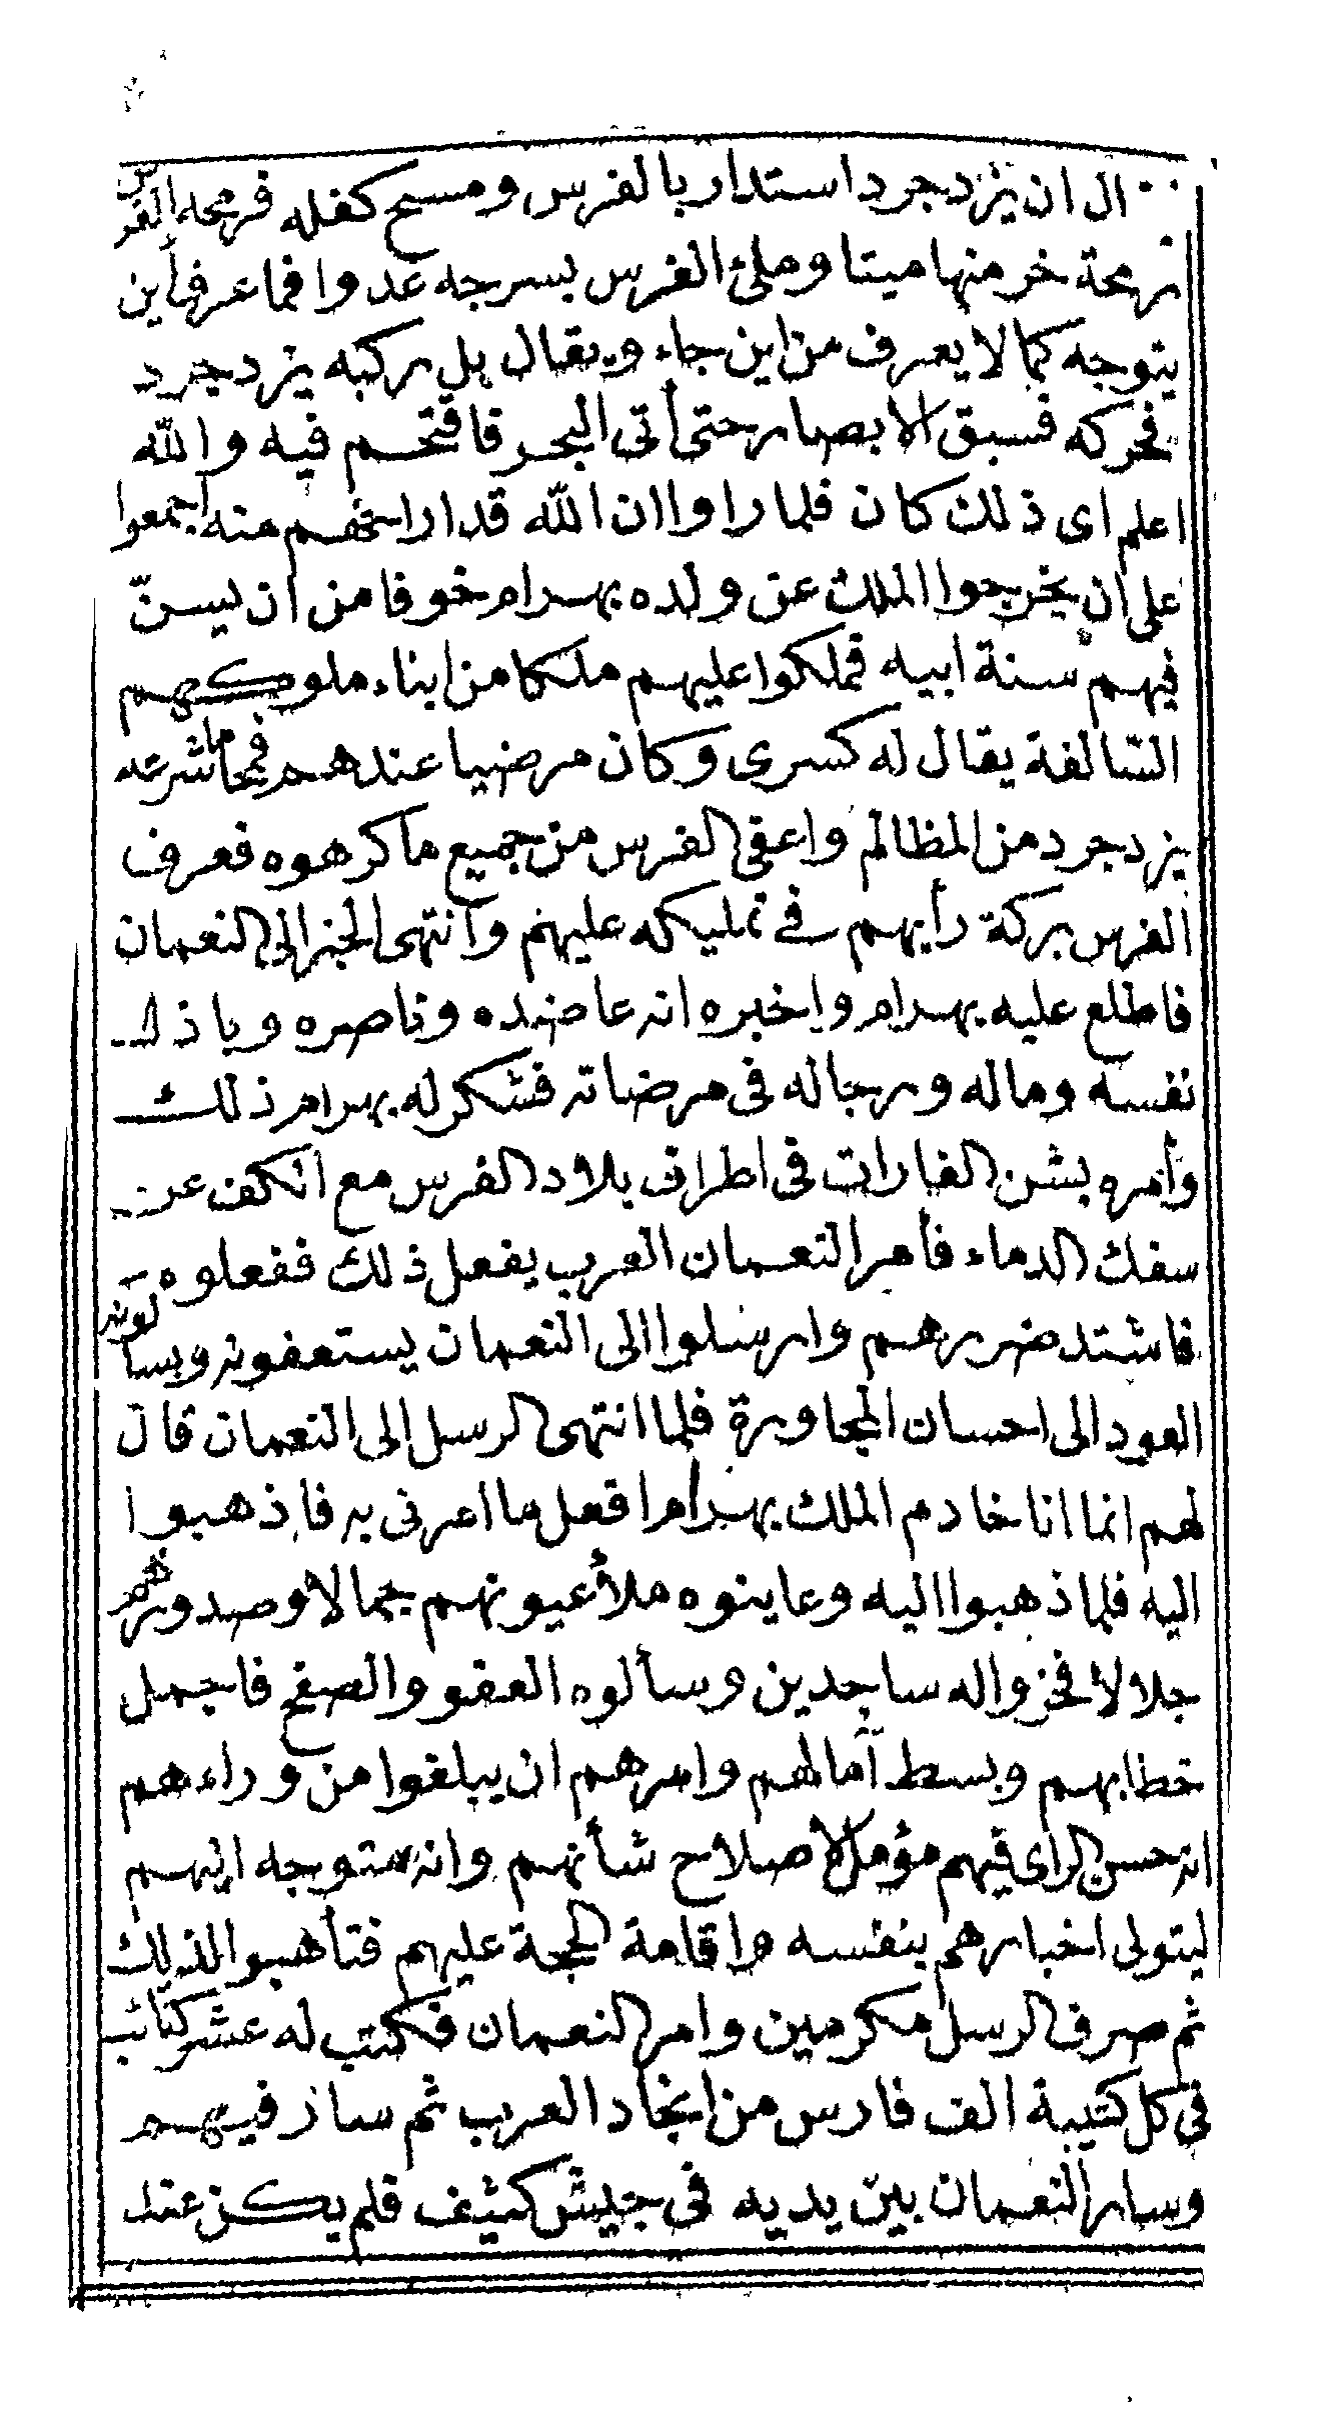 ال ان يزدجرد استدار بالفرس ومسح كفله فرمحه الفرس
رمحة خر منها ميتا وملئ الفرس بسرجه عدوا فما عرف أين
يتوجه كما لا يعرف من اين جاء ويقال بل ركبه يزدجرد
فحركه فسبق الابصار حتى أتى البحر فاقتحم فيه والله
اعلم اى ذلك كان فلما راوا ان الله قد اراحهم منه اجمعوا
على ان يخرجوا الملك عن ولده بهرام خوفا من ان يسنّ
فيهم سنة ابيه فملكوا عليهم ملكا من ابناء ملوكهم
السالفة يقال له كسرى وكان مرضيا عندهم فمحا ما شرعه
يزدجرد من المظالم واعفى الفرس من جميع ما كرهوه فعرف
الفرس بركة رأيهم فى تمليكه عليهم وانتهى الخبر الى النعمان
فاطلع عليه بهرام واخبره انه عاضده وناصره وباذل
نفسه وماله ورجاله فى مرضاته فشكر له بهرام ذلك
وأمره بشن الغارات فى اطراف بلاد الفرس مع الكف عن
سفك الدماء فأمر النعمان العرب بفعل ذلك ففعلوه
فاشتد ضررهم وارسلوا الى النعمان يستعفونه ويسألونه
العود الى احسان المجاورة فلما انتهى الرسل الى النعمان قال
لهم انما انا خادم الملك بهرام افعل ما امرنى به فاذهبوا
اليه فلما ذهبوا اليه وعاينوه ملأ عيونهم جمالا وصدورهم
جلالا فخروا له ساجدين وسألوه العفو والصفح فاجمل
خطابهم وبسط آمالهم وامرهم ان يبلغوا من وراءهم
انه حسن الراى فيهم مؤمل لاصلاح شأنهم وانه متوجه اليهم
ليتولى اخبارهم بنفسه واقامة الحجة عليهم فتأهبوا لذلك
ثم صرف الرسل مكرمين وامر النعمان فكتب له عشر كتائب
فى كل كتيبة الف فارس من انجاد العرب ثم سار فيهم
وسار النعمان بين يديه فى جيش كثيف فلم يكن عند